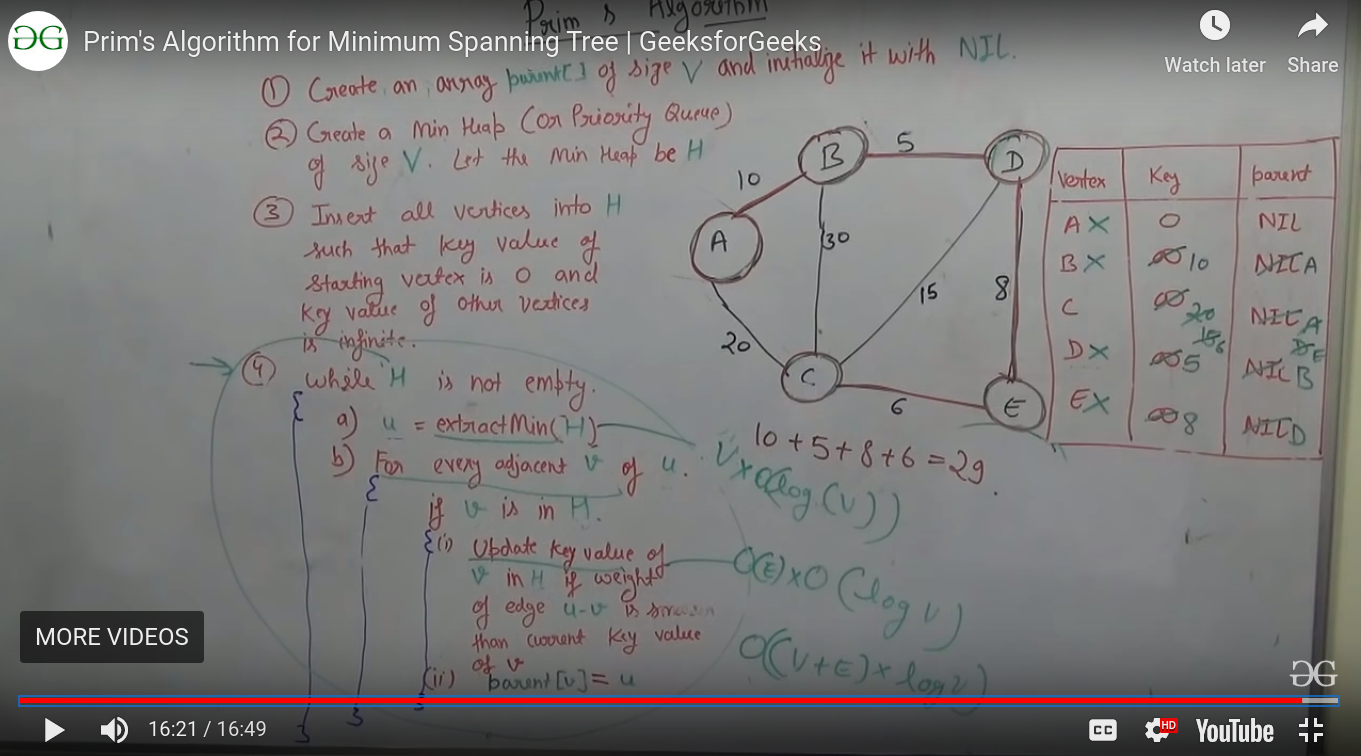 Prim's Algorithm
Prim's Algorithm for Minimum Spanning Tree | GeeksforGeeks
Watch later
Share
① Create an array parent[] of size V and initialize it with NIL.
② Create a Min Heap (or Priority Queue)
of size V. Let the Min Heap be H
③ Insert all vertices into H
such that key value of
starting vertex is 0 and
key value of other vertices
is infinite.
④ while H is not empty.
{
a) u = extractMin(H)
b) For every adjacent v of u.
{
if v is in H.
{(i) Update key value of
v in H if weight
of edge u-v is smaller
than current key value
of v
(ii) parent[v] = u
}
}
}
A
B
C
D
E
10
5
30
15
8
20
6
10+5+8+6=29.
V×O(log(V))
O(E)×O(log V)
O((V+E)×log V)
Vertex Key parent
A X 0 NIL
B X ∞ 10 NIL A
C ∞ 20 15 6 NIL A D E
D X ∞ 5 NIL B
E X ∞ 8 NIL D
MORE VIDEOS
16:21 / 16:49
CC
HD
YouTube